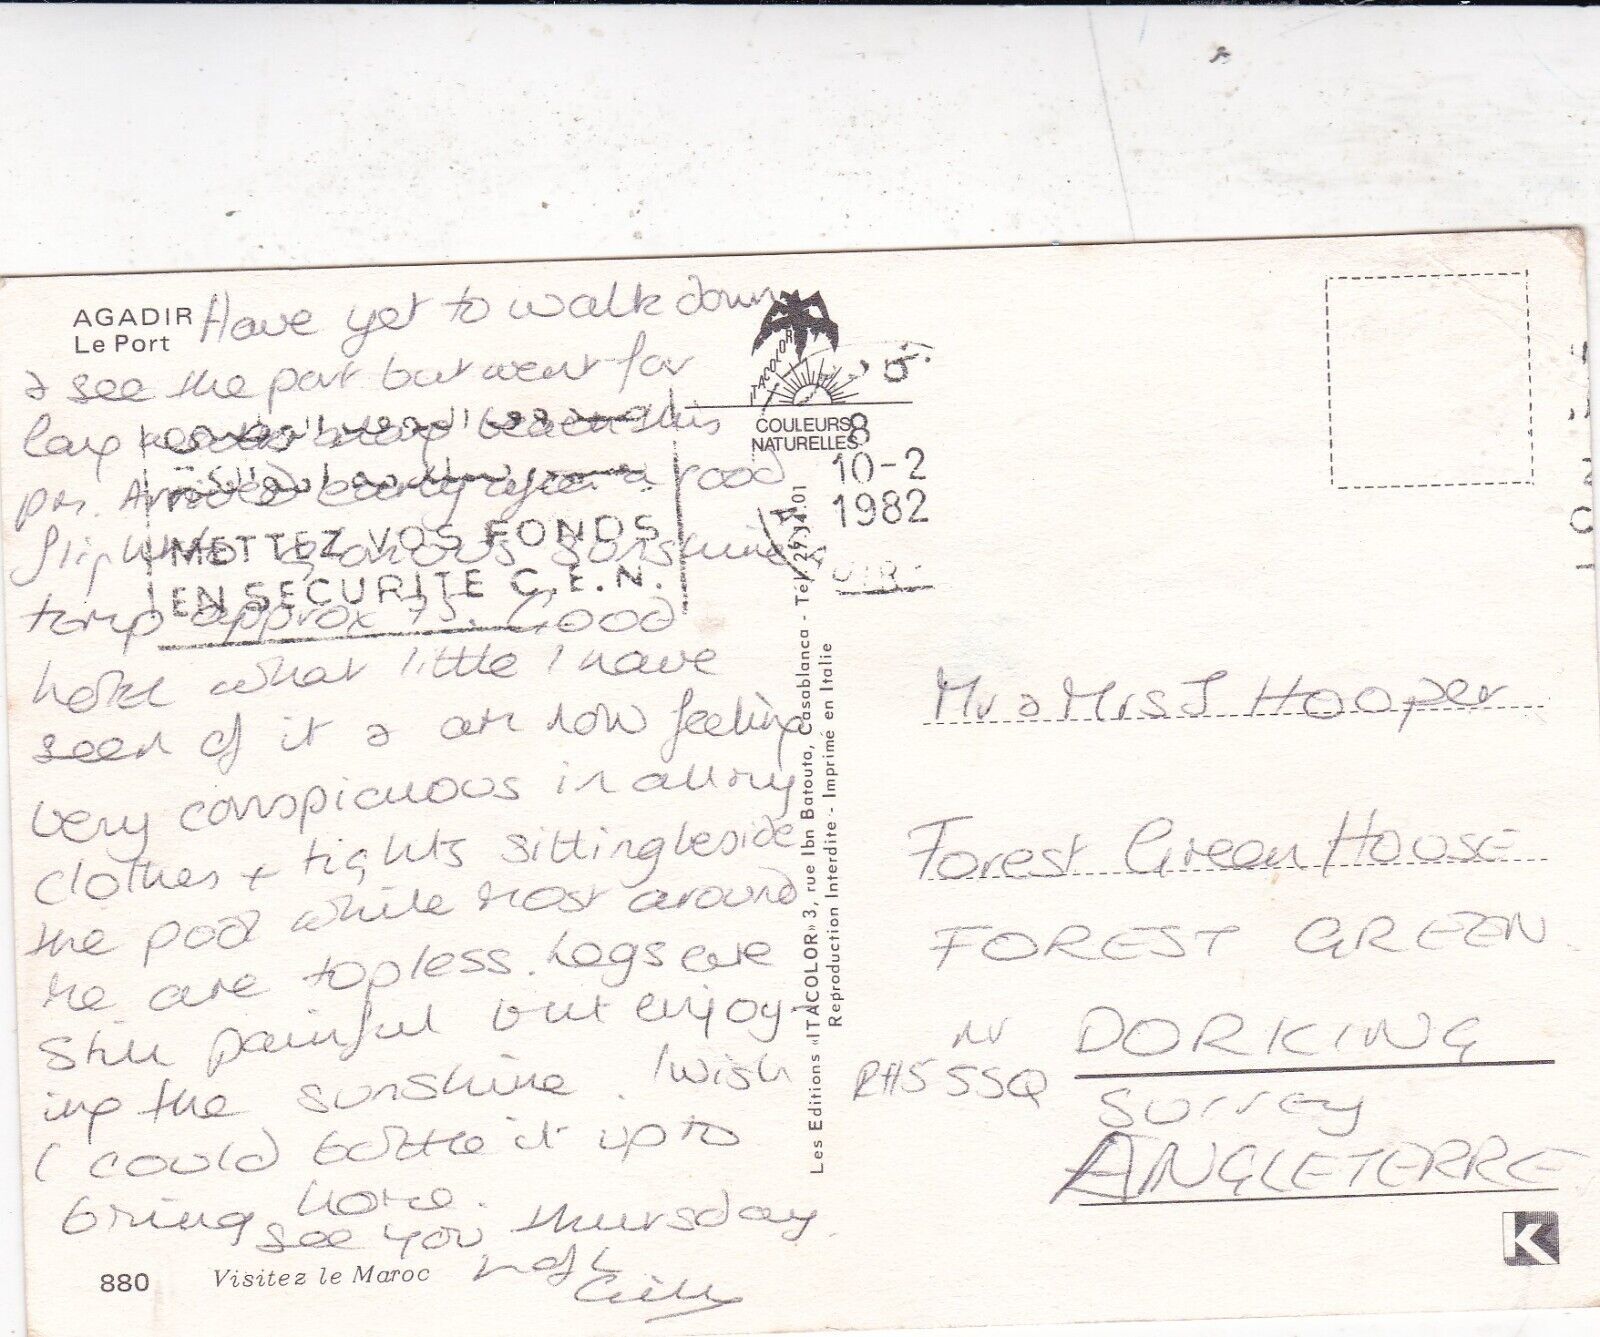 AGADIR
Le Port
Have yet to walk down
& see the port but went for
long beach this
pm. Arrived early after a good
flight to glorious sunshine
temp approx 75. Good
hotel what little I have
seen of it & am now feeling
very conspicuous in all my
clothes + tights sitting beside
the pool while most around
me are topless. Legs are
still painful but enjoy
ing the sunshine. I wish
I could bottle it up to
bring home.
see you Thursday.
Gill
880
Visitez le Maroc
METTEZ VOS FONDS
EN SECURITE C.E.N.
ITACOLOR
COULEURS
NATURELLES
8
10-2
1982
Les Editions «ITACOLOR» 3, rue Ibn Batouta, Casablanca - Tél. 29.34.01
Reproduction Interdite - Imprimé en Italie
Mr & Mrs J Hooper
Forest Green House
FOREST GREEN
nr DORKING
RH5 5SQ
Surrey
ANGLETERRE
K